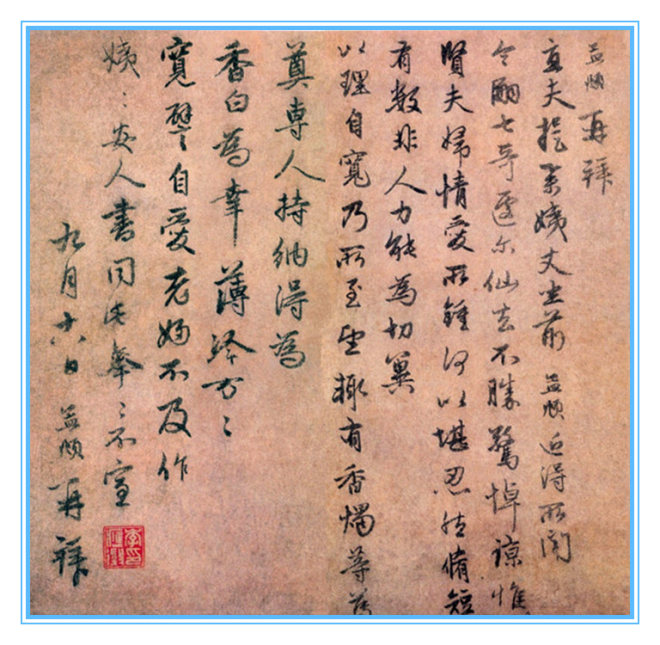 益順 再拜
直夫提舉姨丈坐前 益順 近得所聞
令嗣七哥遽尔仙去不勝驚悼諒惟
賢夫婦情愛所鍾何以堪忍然脩短
有數非人力能為切冀
以理自寬乃所至望輒有香燭等為
奠専人持納得為
香白為幸薄 万〻
寬譬自愛老婦不及作
姨〻安人書同此拳〻不宣
九月十八日 益順 再拜